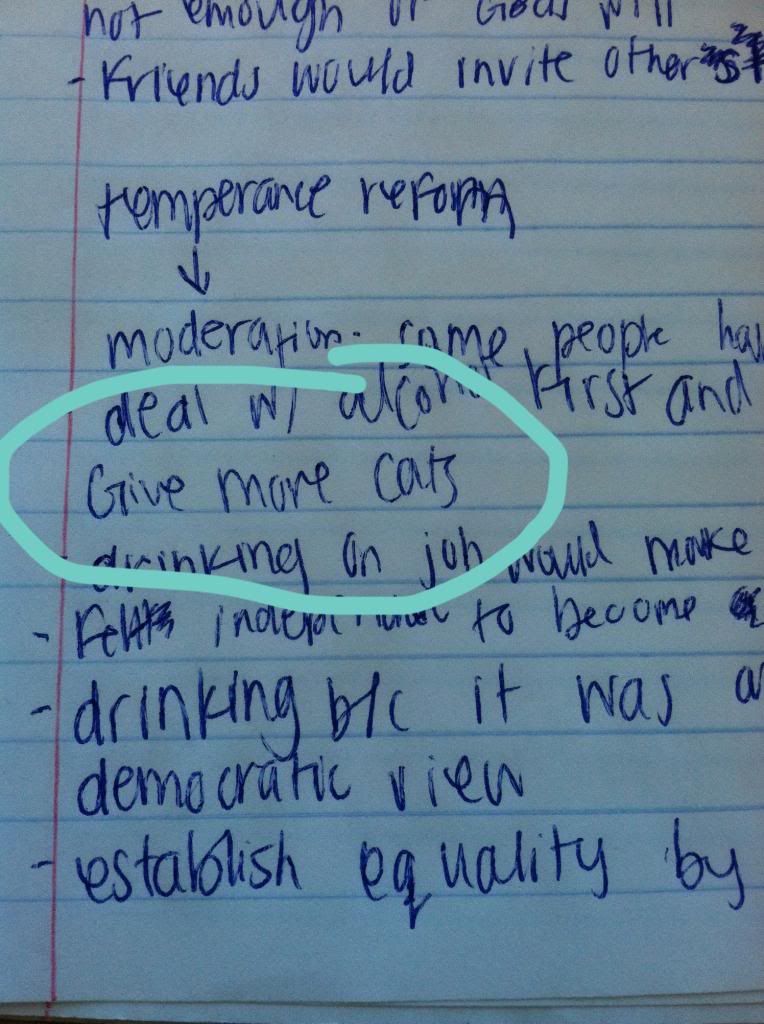 not enough of Gods will
- Friends would invite others
temperance reform
↓
moderation- some people ha
deal w/ alcohol first and
Give more cats
drinking on job would make
- Felt independent to become
- drinking b/c it was a
democratic view
- establish equality by